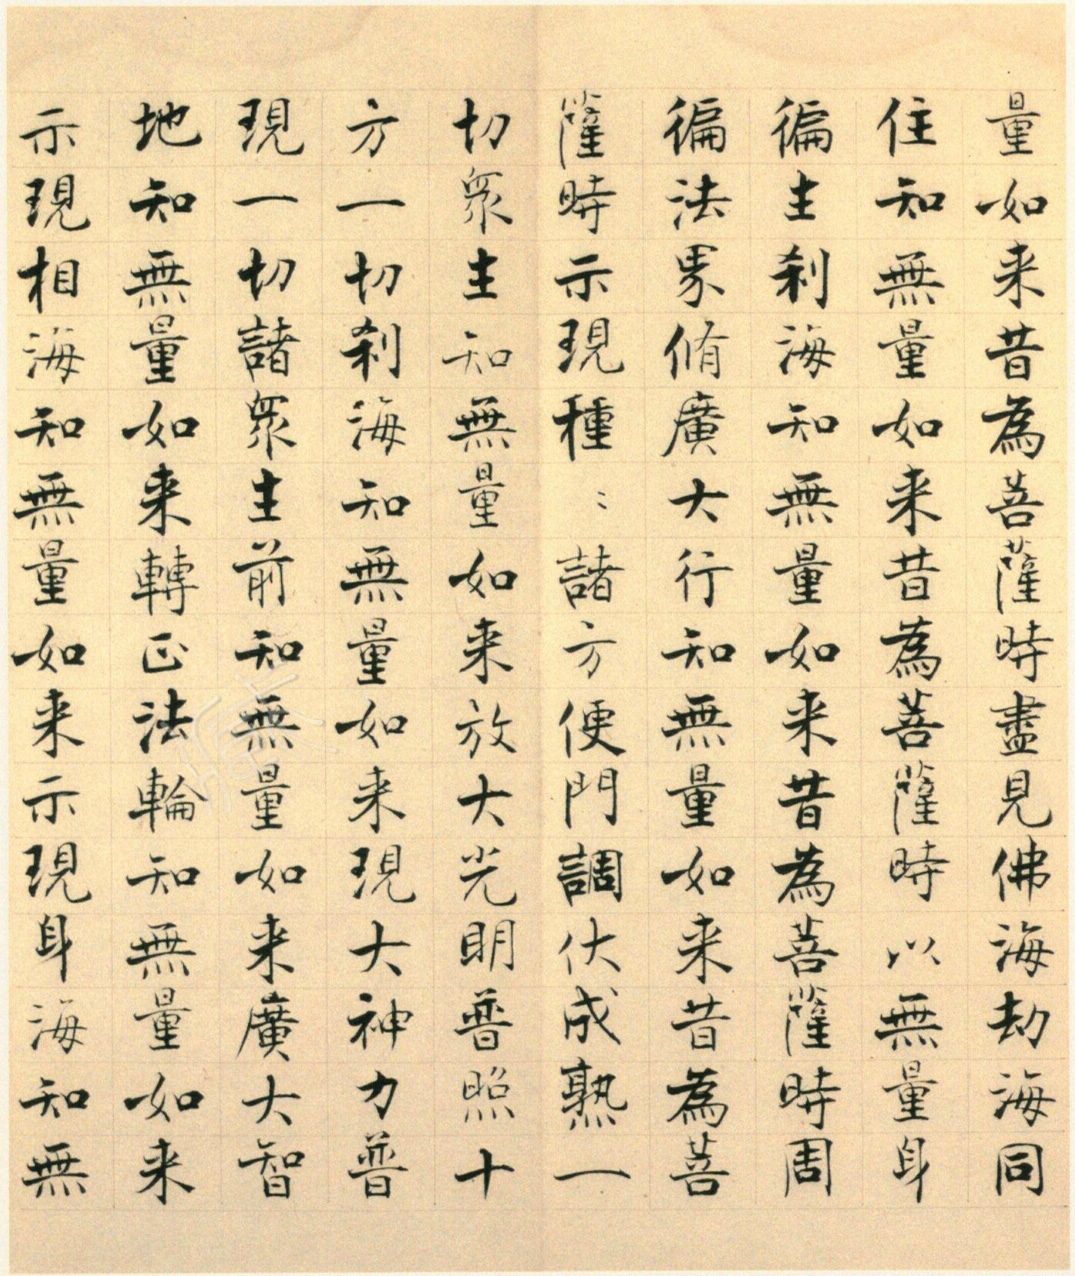 量如来昔為菩薩時盡見佛海劫海同
住知無量如来昔為菩薩時以無量身
徧生刹海知無量如来昔為菩薩時周
徧法界脩廣大行知無量如来昔為菩
薩時示現種〻諸方便門調伏成熟一
切衆生知無量如来放大光明普照十
方一切刹海知無量如来現大神力普
現一切諸衆生前知無量如来廣大智
地知無量如来轉正法輪知無量如来
示現相海知無量如来示現身海知無